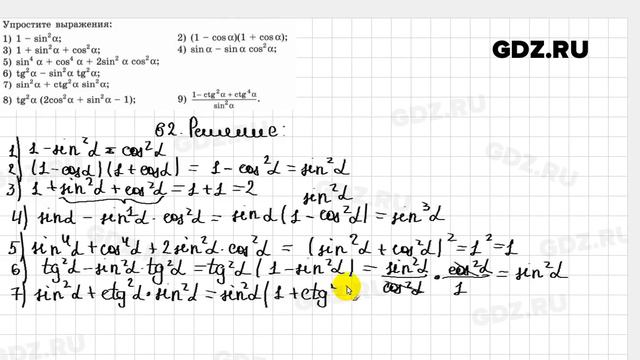 Упростите выражения:
1) 1 − sin²α; 2) (1 − cosα)(1 + cosα);
3) 1 + sin²α + cos²α; 4) sinα − sinα cos²α;
5) sin⁴ α + cos⁴ α + 2sin² α cos²α;
6) tg²α − sin²α tg²α;
7) sin²α + ctg²α sin²α;
8) tg²α (2cos²α + sin²α − 1); 9) (1−ctg²α+ctg⁴α)/sin²α.
GDZ.RU
62. Решение:
1) 1 − sin²α = cos²α
2) (1 − cosα)(1 + cosα) = 1 − cos²α = sin²α
3) 1 + sin²α + cos²α = 1 + 1 = 2
1 sin²α
4) sinα − sinα · cos²α = sinα (1 − cos²α) = sin³α
5) sin⁴α + cos⁴α + 2sin²α · cos²α = (sin²α + cos²α)² = 1² = 1
6) tg²α − sin²α · tg²α = tg²α (1 − sin²α) = sin²α/cos²α · cos²α/1 = sin²α
7) sin²α + ctg²α · sin²α = sin²α (1 + ctg²